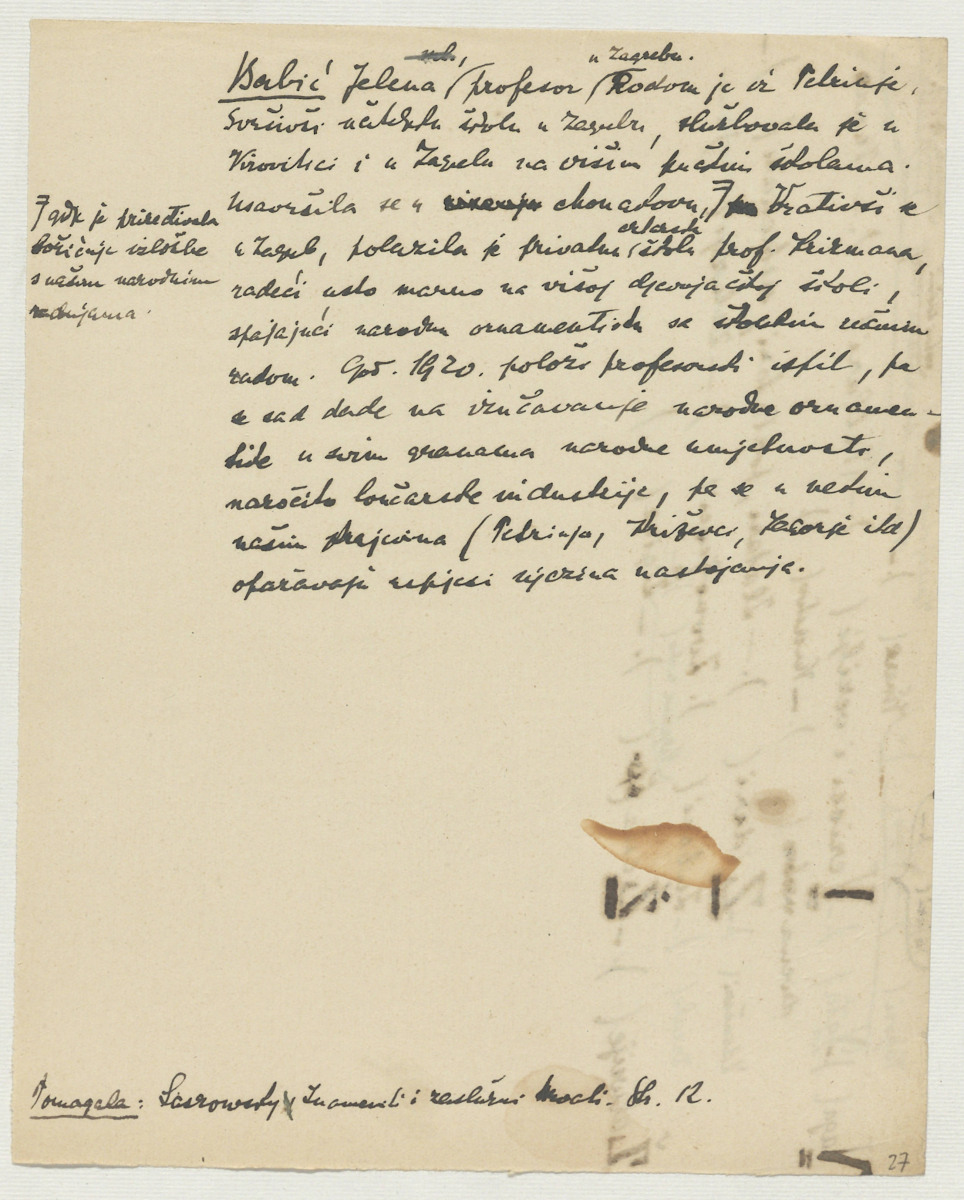 u Zagrebu.
Babić Jelena, profesor Rodom je iz Petrinje.
Svršivši učiteljsku školu u Zagrebu, službovala je u
Virovitici i u Zagrebu na višim pučkim školama.
Usavršila se u
Vrativši se
u Zagreb, polazila je privatnu školu prof. Krizmana,
radeći usto marno na višoj djevojačkoj školi,
spajajući narodnu ornamentiku sa školskim ručnim
radom. God. 1920. položi profesorski ispit, pa
se sad dade na izučavanje narodne ornamen-
tike u svim granama narodne umjetnosti,
naročito lončarske industrije, pa se u nekim
našim krajevima (Petrinja, Križevci, Zagorje itd)
opažavaju uspjesi njezina nastojanja.
gdje je priređivala
božićnje izložbe
s našim narodnim
rednjama.
Pomagala: Laszowsky, Znameniti i zaslužni Hrvati. Str. 12.
27